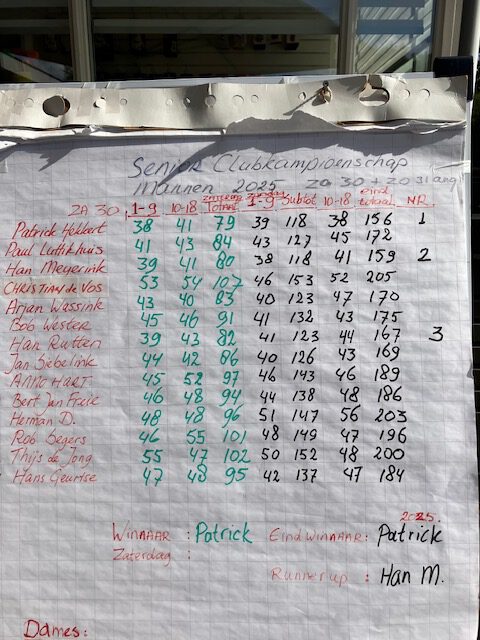 Senior Clubkampioenschap
Mannen 2025 ZA 30 + ZO 31 aug
ZA 30 1-9 10-18 zaterdag Totaal zondag 1-9 Subtot 10-18 eind totaal NR
Patrick Hekkert 38 41 79 39 118 38 156 1
Paul Luttikhuis 41 43 84 43 127 45 172
Han Meyerink 39 41 80 38 118 41 159 2
CHRISTIAN de VOS 53 54 107 46 153 52 205
Arjan Wassink 43 40 83 40 123 47 170
Bob Wester 45 46 91 41 132 43 175
Han Rutten 39 43 82 41 123 44 167 3
Jan Siebelink 44 42 86 40 126 43 169
ANNO HART 45 52 97 46 143 46 189
Bert Jan 46 48 94 44 138 48 186
Herman D. 48 48 96 51 147 56 203
Rob Segers 46 55 101 48 149 47 196
Thijs de Jong 55 47 102 50 152 48 200
Hans Geurtse 47 48 95 42 137 47 184
2025
WINNAAR : Patrick EINDWINNAAR: Patrick
Zaterdag :
Runner up : Han M.
Dames: